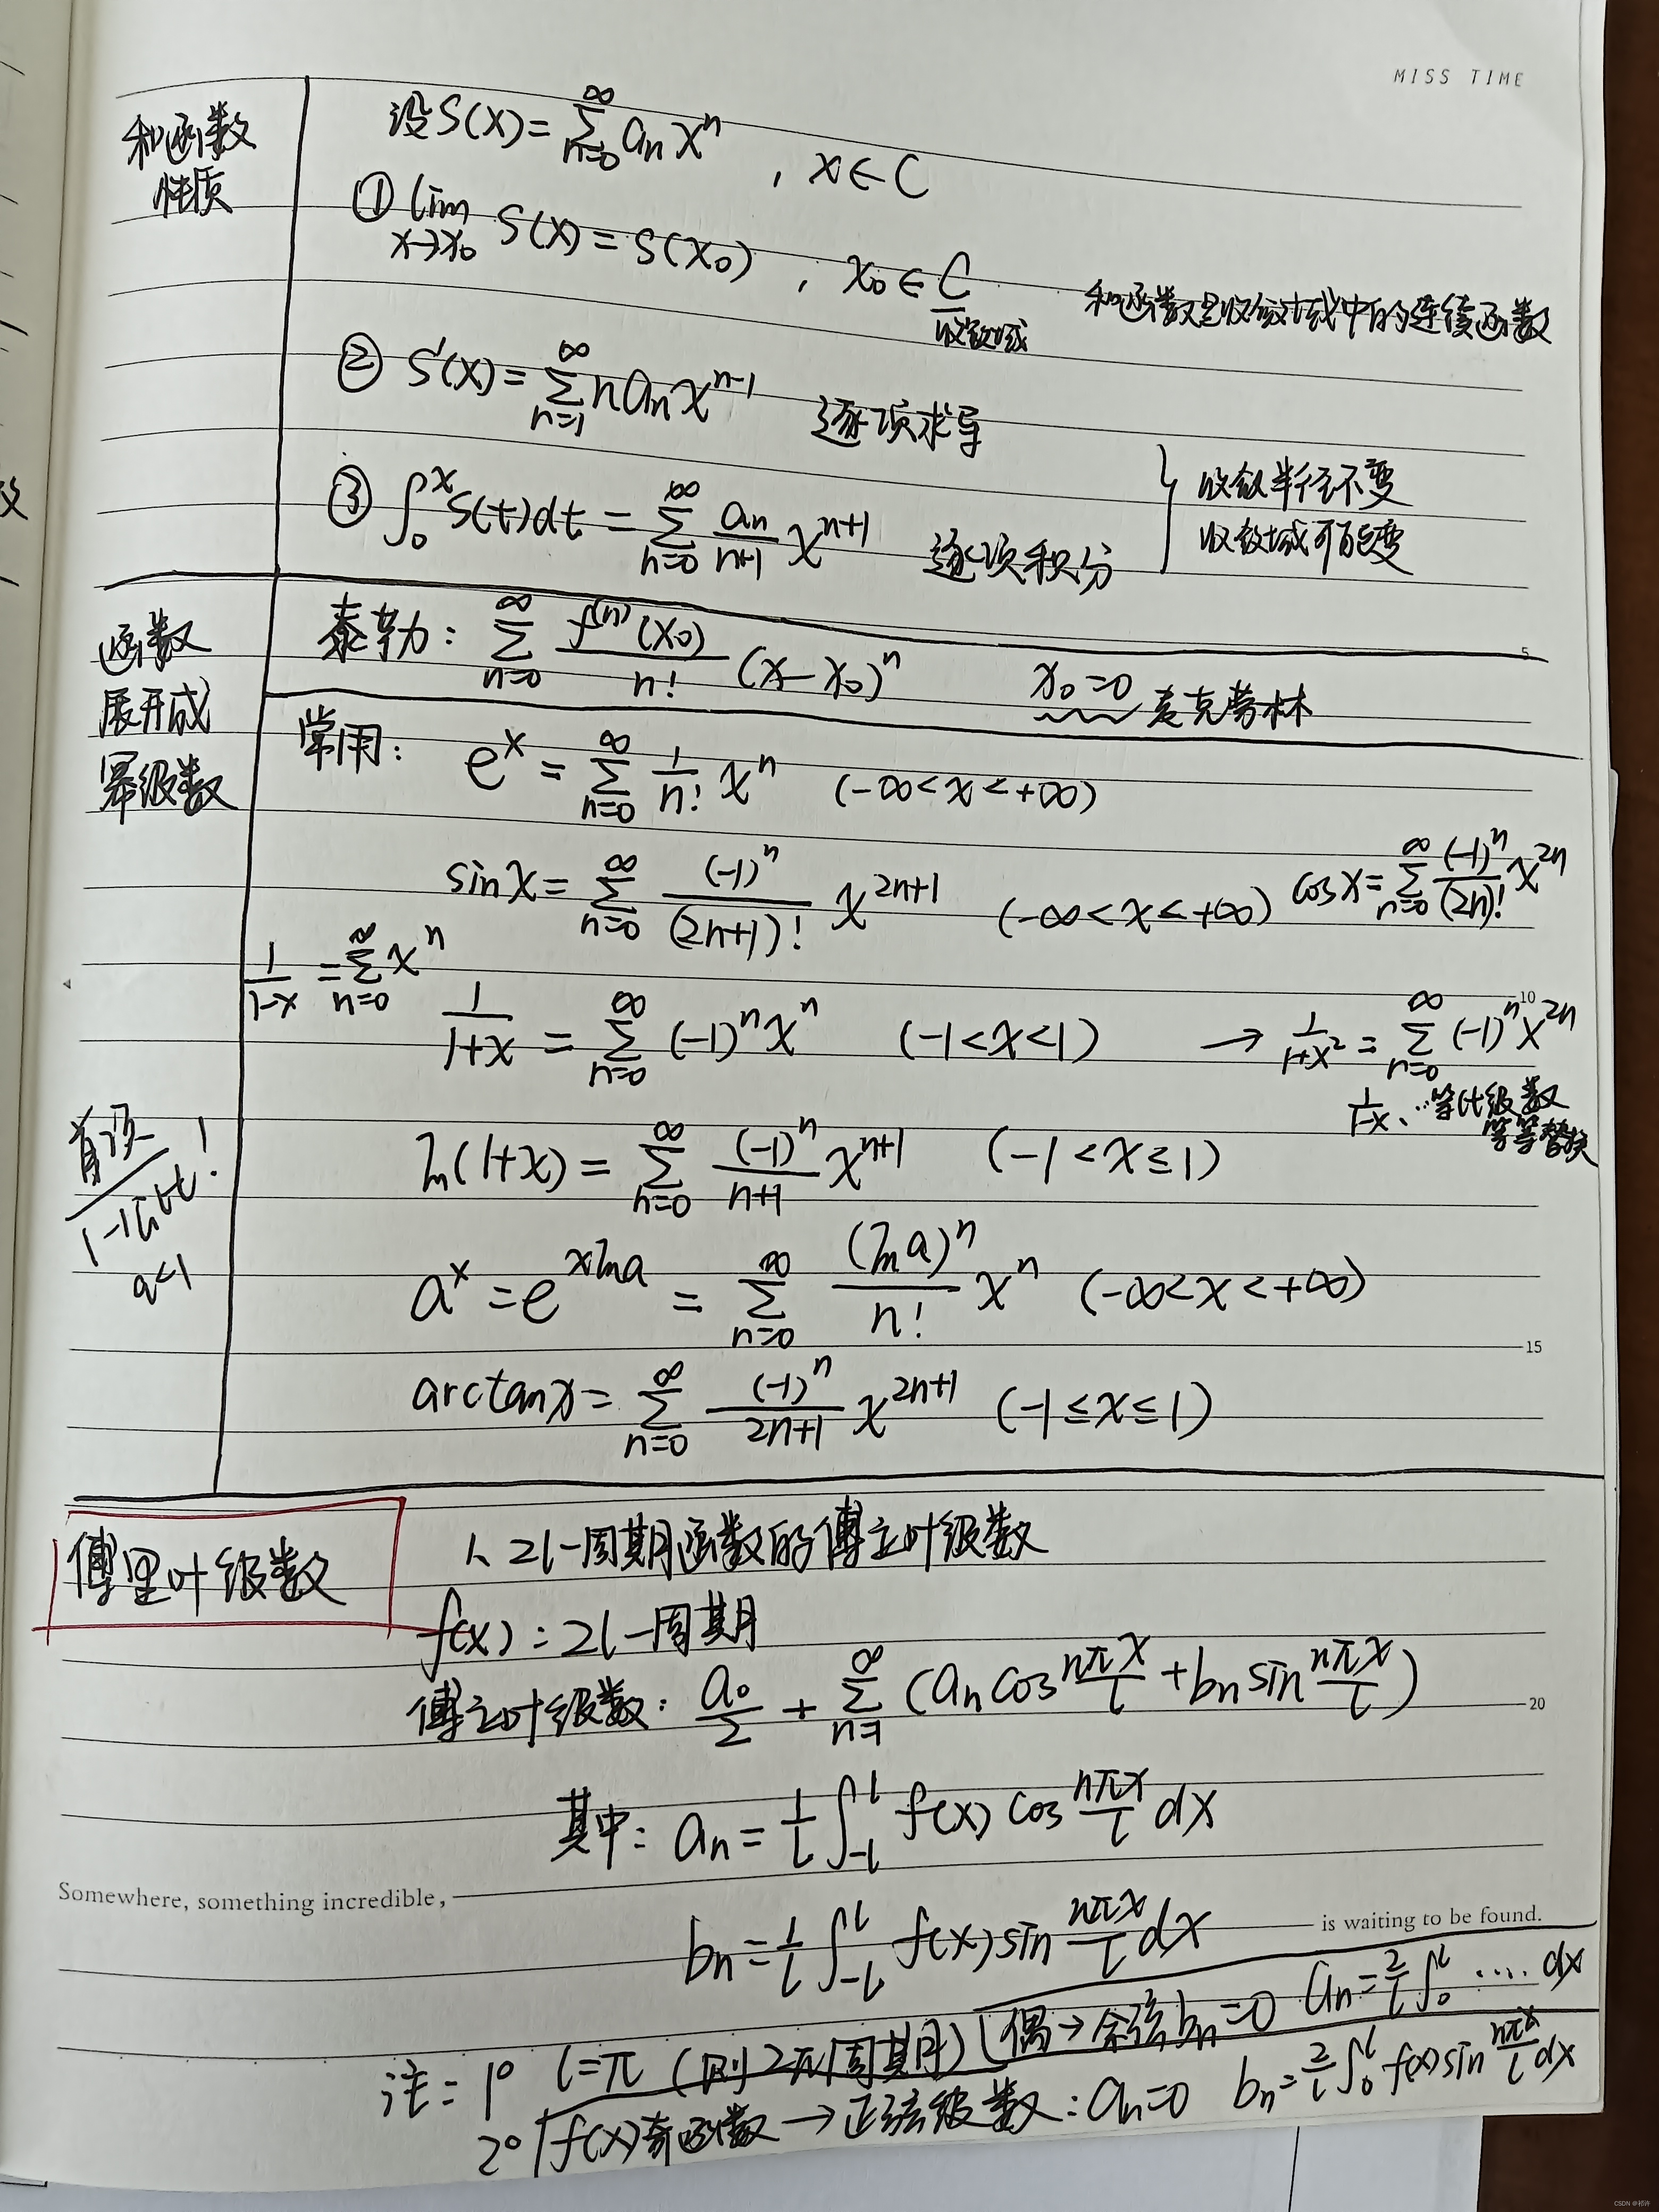 MISS TIME
和函数
性质
设 S(x) = ∑_{n=0}^{∞} aₙxⁿ , x∈C
① lim_{x→x₀} S(x) = S(x₀) , x₀∈C 和函数是收敛域中的连续函数
收敛域
② S'(x) = ∑_{n=1}^{∞} naₙx^{n-1} 逐项求导
③ ∫₀^x S(t)dt = ∑_{n=0}^{∞} \frac{aₙ}{n+1} x^{n+1} 逐项积分
收敛半径不变
收敛域可能变
函数
展开成
幂级数
5
泰勒: ∑_{n=0}^{∞} \frac{f^{(n)}(x₀)}{n!} (x-x₀)ⁿ x₀=0 麦克劳林
常用: e^x = ∑_{n=0}^{∞} \frac{1}{n!} xⁿ (-∞<x<+∞)
sinx = ∑_{n=0}^{∞} \frac{(-1)ⁿ}{(2n+1)!} x^{2n+1} (-∞<x<+∞) cosx = ∑_{n=0}^{∞} \frac{(-1)ⁿ}{(2n)!} x^{2n}
\frac{1}{1-x} = ∑_{n=0}^{∞} xⁿ
10
\frac{1}{1+x} = ∑_{n=0}^{∞} (-1)ⁿxⁿ (-1<x<1) → \frac{1}{1+x²} = ∑_{n=0}^{∞} (-1)ⁿx^{2n}
\frac{1}{1-x}、…等比级数
等等替换
首项
1-公比!
q<1
ln(1+x) = ∑_{n=0}^{∞} \frac{(-1)ⁿ}{n+1} x^{n+1} (-1<x≤1)
a^x = e^{xlna} = ∑_{n=0}^{∞} \frac{(lna)ⁿ}{n!} xⁿ (-∞<x<+∞)
15
arctanx = ∑_{n=0}^{∞} \frac{(-1)ⁿ}{2n+1} x^{2n+1} (-1≤x≤1)
傅里叶级数
1、2l-周期函数的傅立叶级数
f(x): 2l-周期
傅立叶级数: \frac{a₀}{2} + ∑_{n=1}^{∞} (aₙcos\frac{nπx}{l} + bₙsin\frac{nπx}{l})
20
其中: aₙ = \frac{1}{l} ∫_{-l}^{l} f(x)cos\frac{nπx}{l}dx
Somewhere, something incredible,
bₙ = \frac{1}{l} ∫_{-l}^{l} f(x)sin\frac{nπx}{l}dx
is waiting to be found.
注: 1° l=π (则2π周期) 偶→余弦 bₙ=0 aₙ=\frac{2}{l}∫₀^l ....dx
2° f(x)奇函数→正弦级数: aₙ=0 bₙ=\frac{2}{l}∫₀^l f(x)sin\frac{nπx}{l}dx